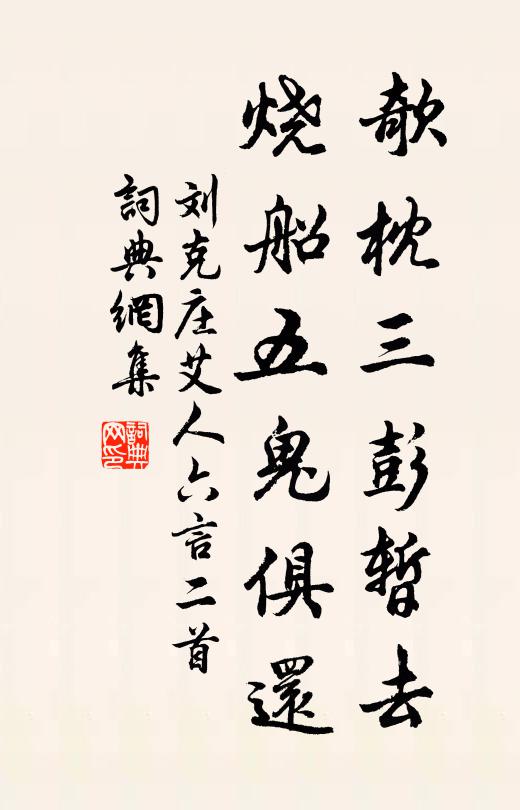 欹枕三彭暫去
烧船五鬼俱還
刘克庄艾人六言二首
詞典網集
詞典网印